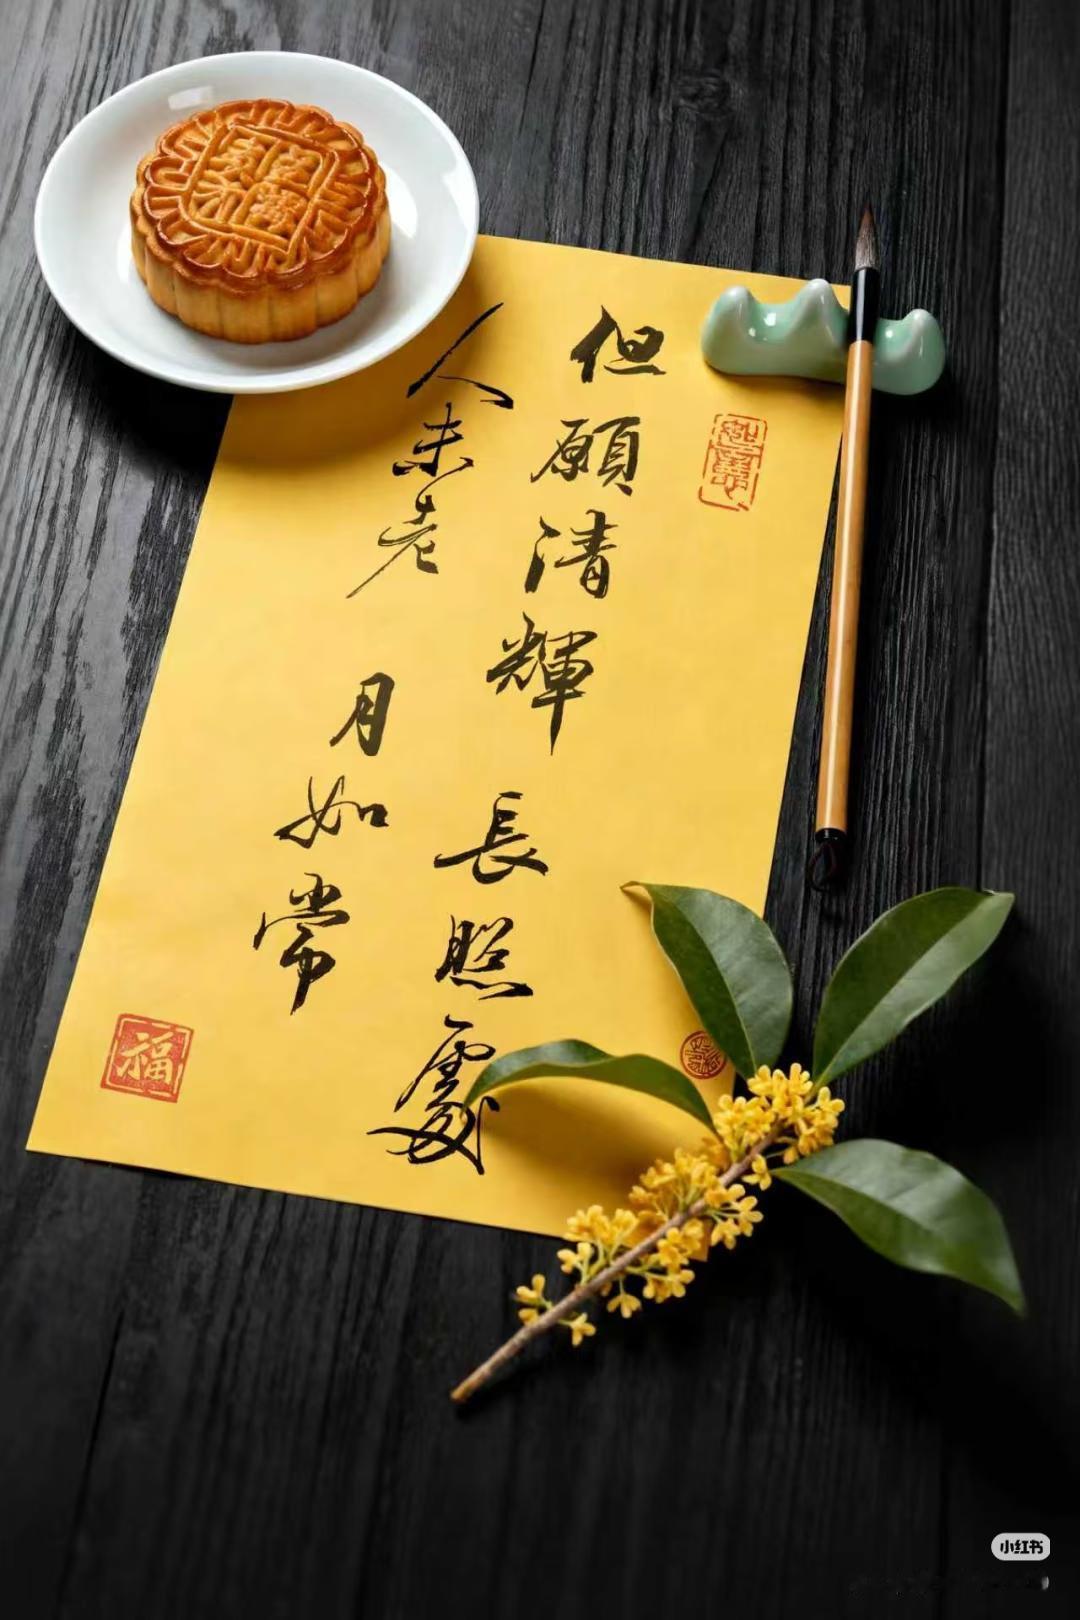 但願清輝長照處
人未老月如常
福
小红书